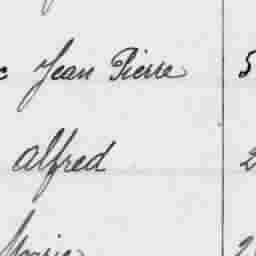 c Jean Pierre 5
Alfred 2
Marie 2